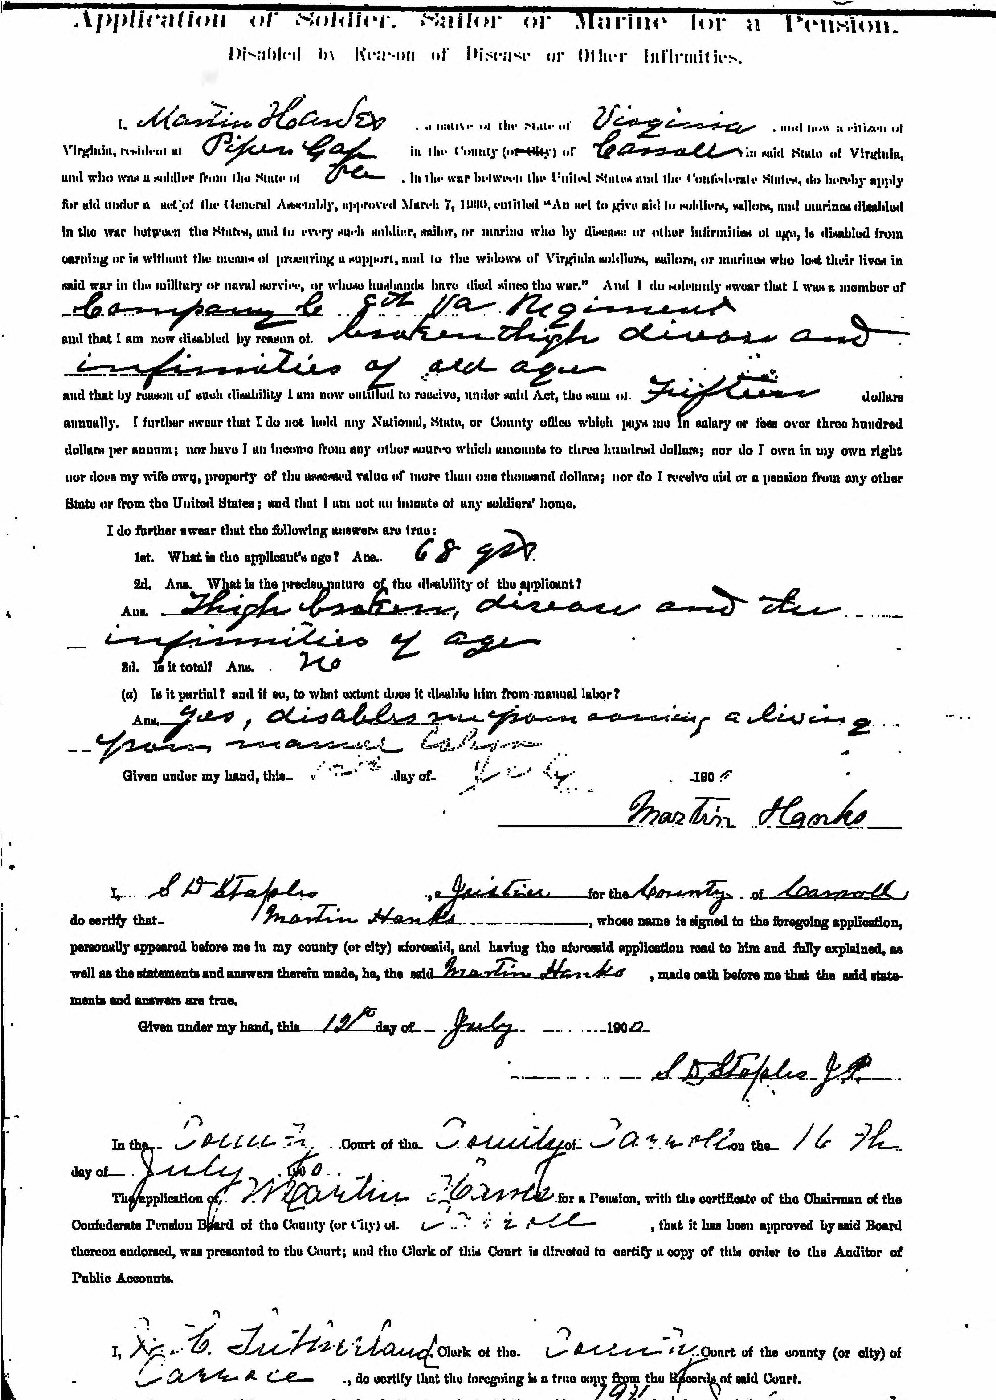 Application of Soldier, Sailor or Marine for a Pension.
Disabled by Reason of Disease or Other Infirmities.
I, Martin Hanks, a native of the State of Virginia, and now a citizen of
Virginia, resident at Pipers Gap in the County (or City) of Carroll in said State of Virginia,
and who was a soldier from the State of Va. in the war between the United States and the Confederate States, do hereby apply
for aid under a act of the General Assembly, approved March 7, 1900, entitled "An act to give aid to soldiers, sailors, and marines disabled
in the war between the States, and to every such soldier, sailor, or marine who by disease or other infirmities of age, is disabled from
earning or is without the means of procuring a support, and to the widows of Virginia soldiers, sailors, or marines who lost their lives in
said war in the military or naval service, or whose husbands have died since the war." And I do solemnly swear that I was a member of
Company C Va Regiment
and that I am now disabled by reason of broken thigh disease and
infirmities of old age
and that by reason of such disability I am now entitled to receive, under said Act, the sum of Fifteen dollars
annually. I further swear that I do not hold any National, State, or County office which pays me in salary or fees over three hundred
dollars per annum; nor have I an income from any other source which amounts to three hundred dollars; nor do I own in my own right
nor does my wife own, property of the assessed value of more than one thousand dollars; nor do I receive aid or a pension from any other
State or from the United States; and that I am not an inmate of any soldiers' home.
I do further swear that the following answers are true:
1st. What is the applicant's age? Ans. 68 yrs.
2d. Ans. What is the precise nature of the disability of the applicant?
Ans. Thigh broken, disease and the
infirmities of age
3d. Is it total? Ans. No
(a) Is it partial? and if so, to what extent does it disable him from manual labor?
Ans. Yes, disables me from earning a living
from manuel labor
Given under my hand, this 12th day of July 190
Martin Hanks
I, S D Staples, Justice for the County of Carroll
do certify that Martin Hanks, whose name is signed to the foregoing application,
personally appeared before me in my county (or city) aforesaid, and having the aforesaid application read to him and fully explained, as
well as the statements and answers therein made, he, the said Martin Hanks, made oath before me that the said state-
ments and answers are true.
Given under my hand, this 12th day of July 1900
S D Staples J.P.
In the County Court of the County of Carroll on the 16 th
day of July 1900
The application of Martin Hanks for a Pension, with the certificate of the Chairman of the
Confederate Pension Board of the County (or City) of Carroll, that it has been approved by said Board
thereon endorsed, was presented to the Court; and the Clerk of this Court is directed to certify a copy of this order to the Auditor of
Public Accounts.
I, C. Sutherland, Clerk of the County Court of the county (or city) of
Carroll, do certify that the foregoing is a true copy from the Records of said Court.